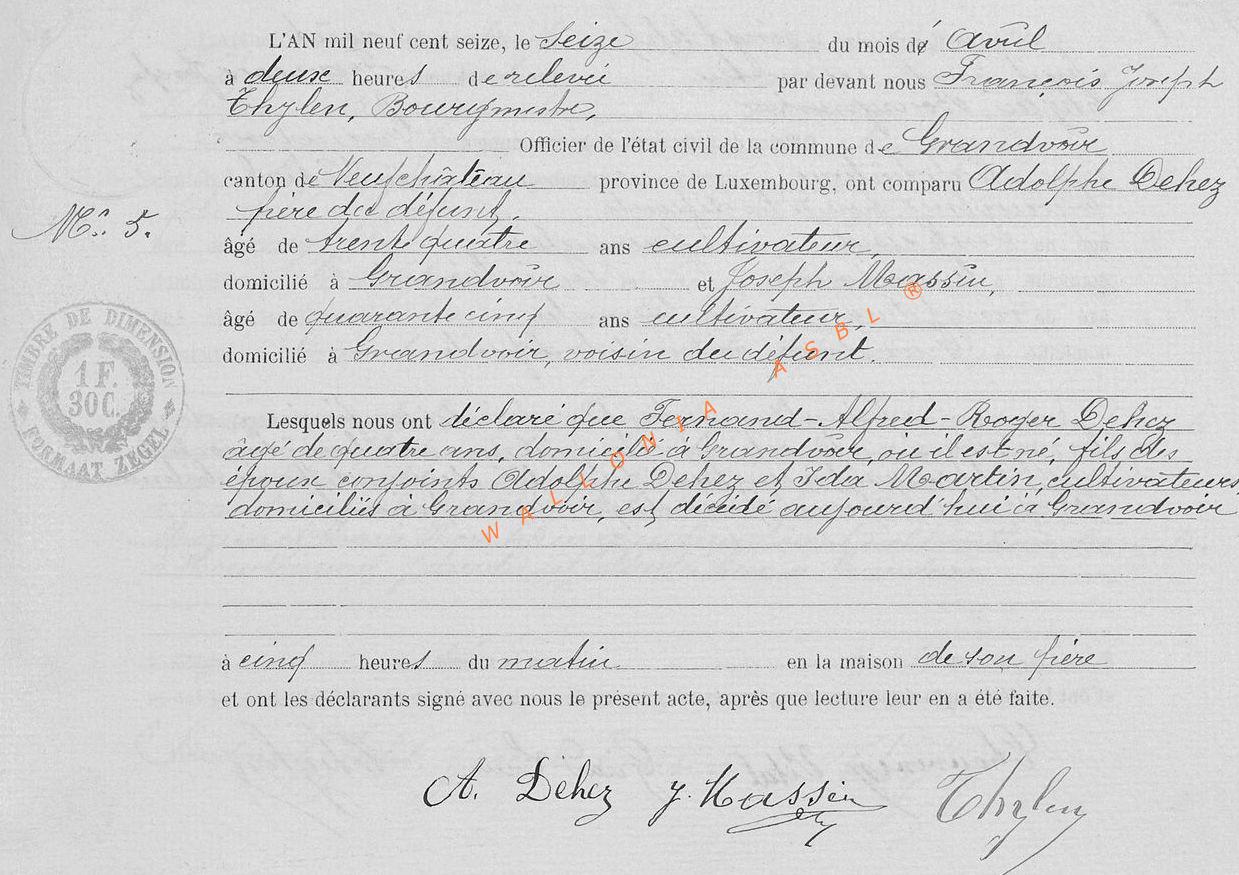 L'AN mil neuf cent seize, le Seize du mois de Avril
à deux heures de relevée par devant nous François Joseph
Thylen, Bourgmestre,
Officier de l'état civil de la commune de Grandvoir
canton de Neufchâteau province de Luxembourg, ont comparu Adolphe Dehez
père du défunt,
Nº. 5.
âgé de trente quatre ans cultivateur,
domicilié à Grandvoir et Joseph Massin,
âgé de quarante cinq ans cultivateur,
domicilié à Grandvoir, voisin du défunt.
TIMBRE DE DIMENSION
1 F.
30 C.
FORMAAT ZEGEL
Lesquels nous ont déclaré que Fernand-Alfred-Roger Dehez
âgé de quatre ans, domicilié à Grandvoir, où il est né, fils des
époux conjoints Adolphe Dehez et Ida Martin, cultivateurs,
domiciliés à Grandvoir, est décédé aujourd'hui à Grandvoir
à cinq heures du matin en la maison de son père
et ont les déclarants signé avec nous le présent acte, après que lecture leur en a été faite.
A. Dehez J. Massin Thylen
WALLONIA ASBL ®